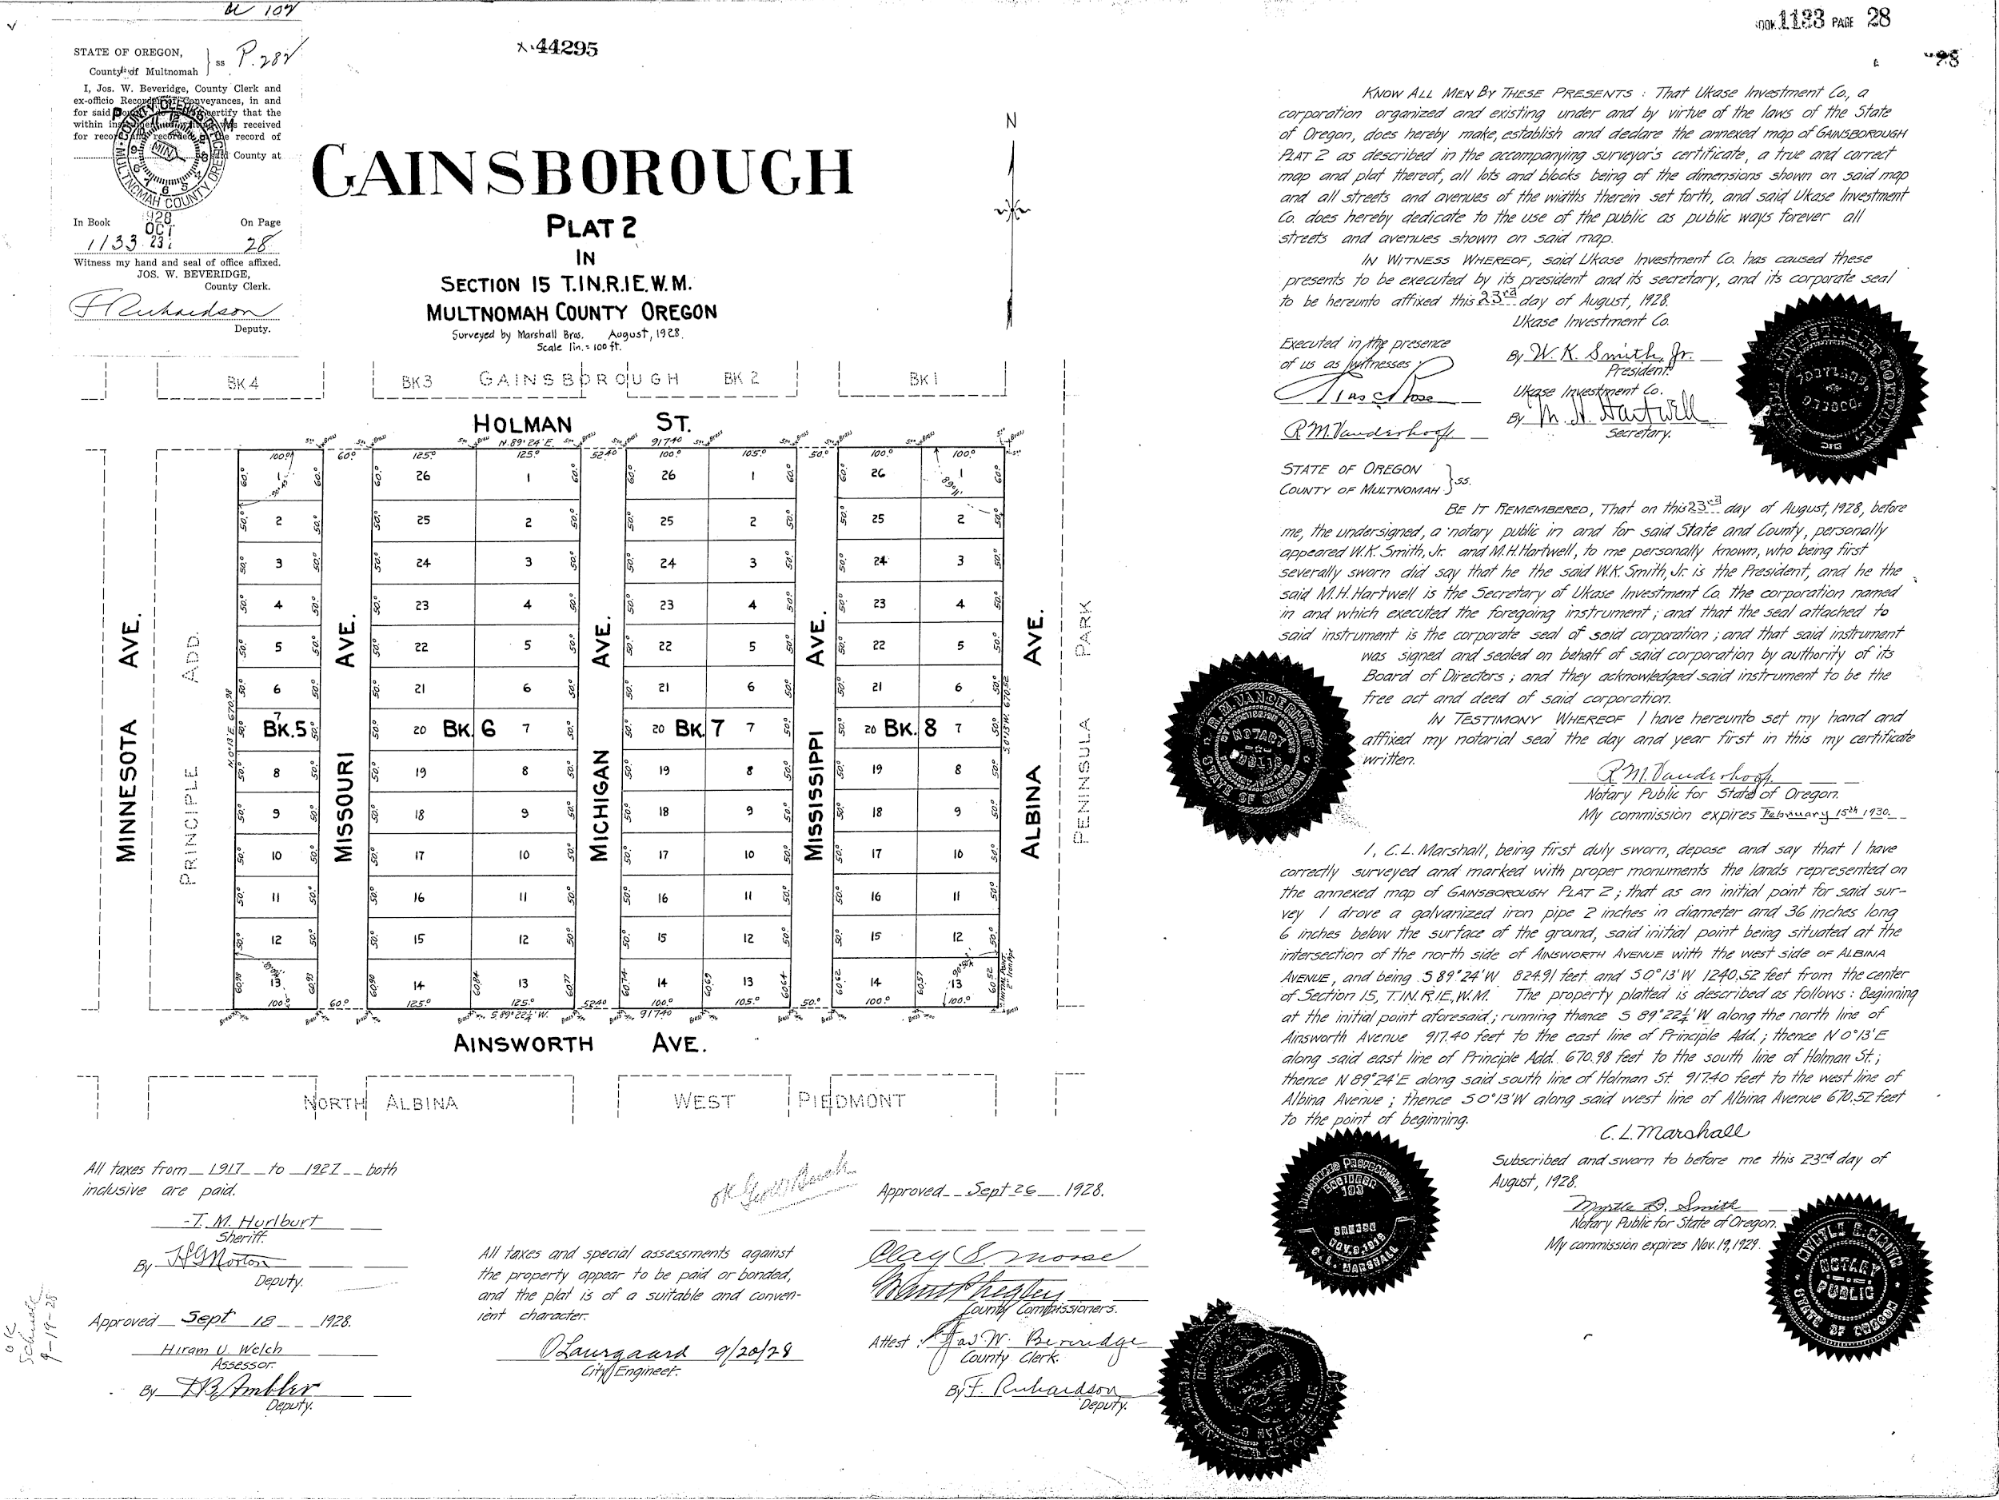 P. 282
STATE OF OREGON,
County of Multnomah
ss
I, Jos. W. Beveridge, County Clerk and
ex-officio Recorder of Conveyances, in and
for said
certify that the
within
was received
for record and recorded
record of
County at
MULTNOMAH COUNTY OREGON
1928
OCT
23
In Book
On Page
1133
28
Witness my hand and seal of office affixed.
JOS. W. BEVERIDGE,
County Clerk.
F Richardson
Deputy.
44295
GAINSBOROUGH
PLAT 2
IN
SECTION 15 T.1N.R.1E.W.M.
MULTNOMAH COUNTY OREGON
Surveyed by Marshall Bros. August, 1928.
Scale 1in. = 100 ft.
N
BK 4
BK 3
GAINSBOROUGH
BK 2
BK 1
HOLMAN ST.
N. 89°24' E.
917.40
100.0 60.0 125.0 125.0 52.40 100.0 105.0 50.0 100.0 100.0
1 26 1 26 1 26 1
2 25 2 25 2 25 2
3 24 3 24 3 24 3
4 23 4 23 4 23 4
5 22 5 22 5 22 5
6 21 6 21 6 21 6
7 20 7 20 7 20 7
BK. 5 BK. 6 BK. 7 BK. 8
8 19 8 19 8 19 8
9 18 9 18 9 18 9
10 17 10 17 10 17 10
11 16 11 16 11 16 11
12 15 12 15 12 15 12
13 14 13 14 13 14 13
60.98 60.93 60.90 60.84 60.77 60.74 60.69 60.64 60.62 60.57 60.52
100.0 60.0 125.0 125.0 52.40 100.0 105.0 50.0 100.0 100.0
S. 89°22¼' W.
917.40
MINNESOTA AVE.
PRINCIPLE ADD.
N. 0°13' E. 670.98
MISSOURI AVE.
MICHIGAN AVE.
MISSISSIPPI AVE.
S. 0°13' W. 670.52
ALBINA AVE.
PENINSULA PARK
AINSWORTH AVE.
NORTH ALBINA
WEST PIEDMONT
All taxes from 1917 to 1927 both
inclusive are paid.
T. M. Hurlburt
Sheriff.
By H G Morton
Deputy.
Approved Sept 18 1928.
Hiram U. Welch
Assessor.
By
Deputy.
OK
9-19-28
All taxes and special assessments against
the property appear to be paid or bonded,
and the plat is of a suitable and conven-
ient character.
O Laurgaard 9/20/28
City Engineer.
Approved Sept 26 1928.
Clay S. Morse
County Commissioners.
Attest: Jos. W. Beveridge
County Clerk.
By F. Richardson
Deputy.
BOOK 1133 PAGE 28
28
KNOW ALL MEN BY THESE PRESENTS: That Ukase Investment Co., a
corporation organized and existing under and by virtue of the laws of the State
of Oregon, does hereby make, establish and declare the annexed map of GAINSBOROUGH
PLAT 2 as described in the accompanying surveyor's certificate, a true and correct
map and plat thereof, all lots and blocks being of the dimensions shown on said map
and all streets and avenues of the widths therein set forth, and said Ukase Investment
Co. does hereby dedicate to the use of the public as public ways forever all
streets and avenues shown on said map.
IN WITNESS WHEREOF, said Ukase Investment Co. has caused these
presents to be executed by its president and its secretary, and its corporate seal
to be hereunto affixed this 23rd day of August, 1928.
Ukase Investment Co.
Executed in the presence
of us as witnesses
By W. K. Smith, Jr.
President.
Ukase Investment Co.
By M. H. Hartwell
Secretary.
R M Vanderhoof
STATE OF OREGON
COUNTY OF MULTNOMAH
ss.
BE IT REMEMBERED, That on this 23rd day of August, 1928, before
me, the undersigned, a notary public in and for said State and County, personally
appeared W.K. Smith, Jr. and M.H. Hartwell, to me personally known, who being first
severally sworn did say that he the said W.K. Smith, Jr. is the President, and he the
said M.H. Hartwell is the Secretary of Ukase Investment Co. the corporation named
in and which executed the foregoing instrument; and that the seal attached to
said instrument is the corporate seal of said corporation; and that said instrument
was signed and sealed on behalf of said corporation by authority of its
Board of Directors; and they acknowledged said instrument to be the
free act and deed of said corporation.
IN TESTIMONY WHEREOF I have hereunto set my hand and
affixed my notarial seal the day and year first in this my certificate
written.
R M Vanderhoof
Notary Public for State of Oregon.
My commission expires February 15th 1930.
NOTARY PUBLIC
STATE OF OREGON
I, C.L. Marshall, being first duly sworn, depose and say that I have
correctly surveyed and marked with proper monuments the lands represented on
the annexed map of GAINSBOROUGH PLAT 2; that as an initial point for said sur-
vey I drove a galvanized iron pipe 2 inches in diameter and 36 inches long
6 inches below the surface of the ground, said initial point being situated at the
intersection of the north side of AINSWORTH AVENUE with the west side OF ALBINA
AVENUE, and being S 89°24' W 824.91 feet and S 0°13' W 1240.52 feet from the center
of Section 15, T.1N.R.1E., W.M. The property platted is described as follows: Beginning
at the initial point aforesaid; running thence S 89°22¼' W along the north line of
Ainsworth Avenue 917.40 feet to the east line of Principle Add.; thence N 0°13' E
along said east line of Principle Add. 670.98 feet to the south line of Holman St.;
thence N 89°24' E along said south line of Holman St. 917.40 feet to the west line of
Albina Avenue; thence S 0°13' W along said west line of Albina Avenue 670.52 feet
to the point of beginning.
C. L. Marshall
Subscribed and sworn to before me this 23rd day of
August, 1928.
Myrtle B. Smith
Notary Public for State of Oregon.
My commission expires Nov. 19, 1929.
REGISTERED PROFESSIONAL
ENGINEER
193
OREGON
C. L. MARSHALL
MYRTLE B. SMITH
NOTARY
PUBLIC
STATE OF OREGON